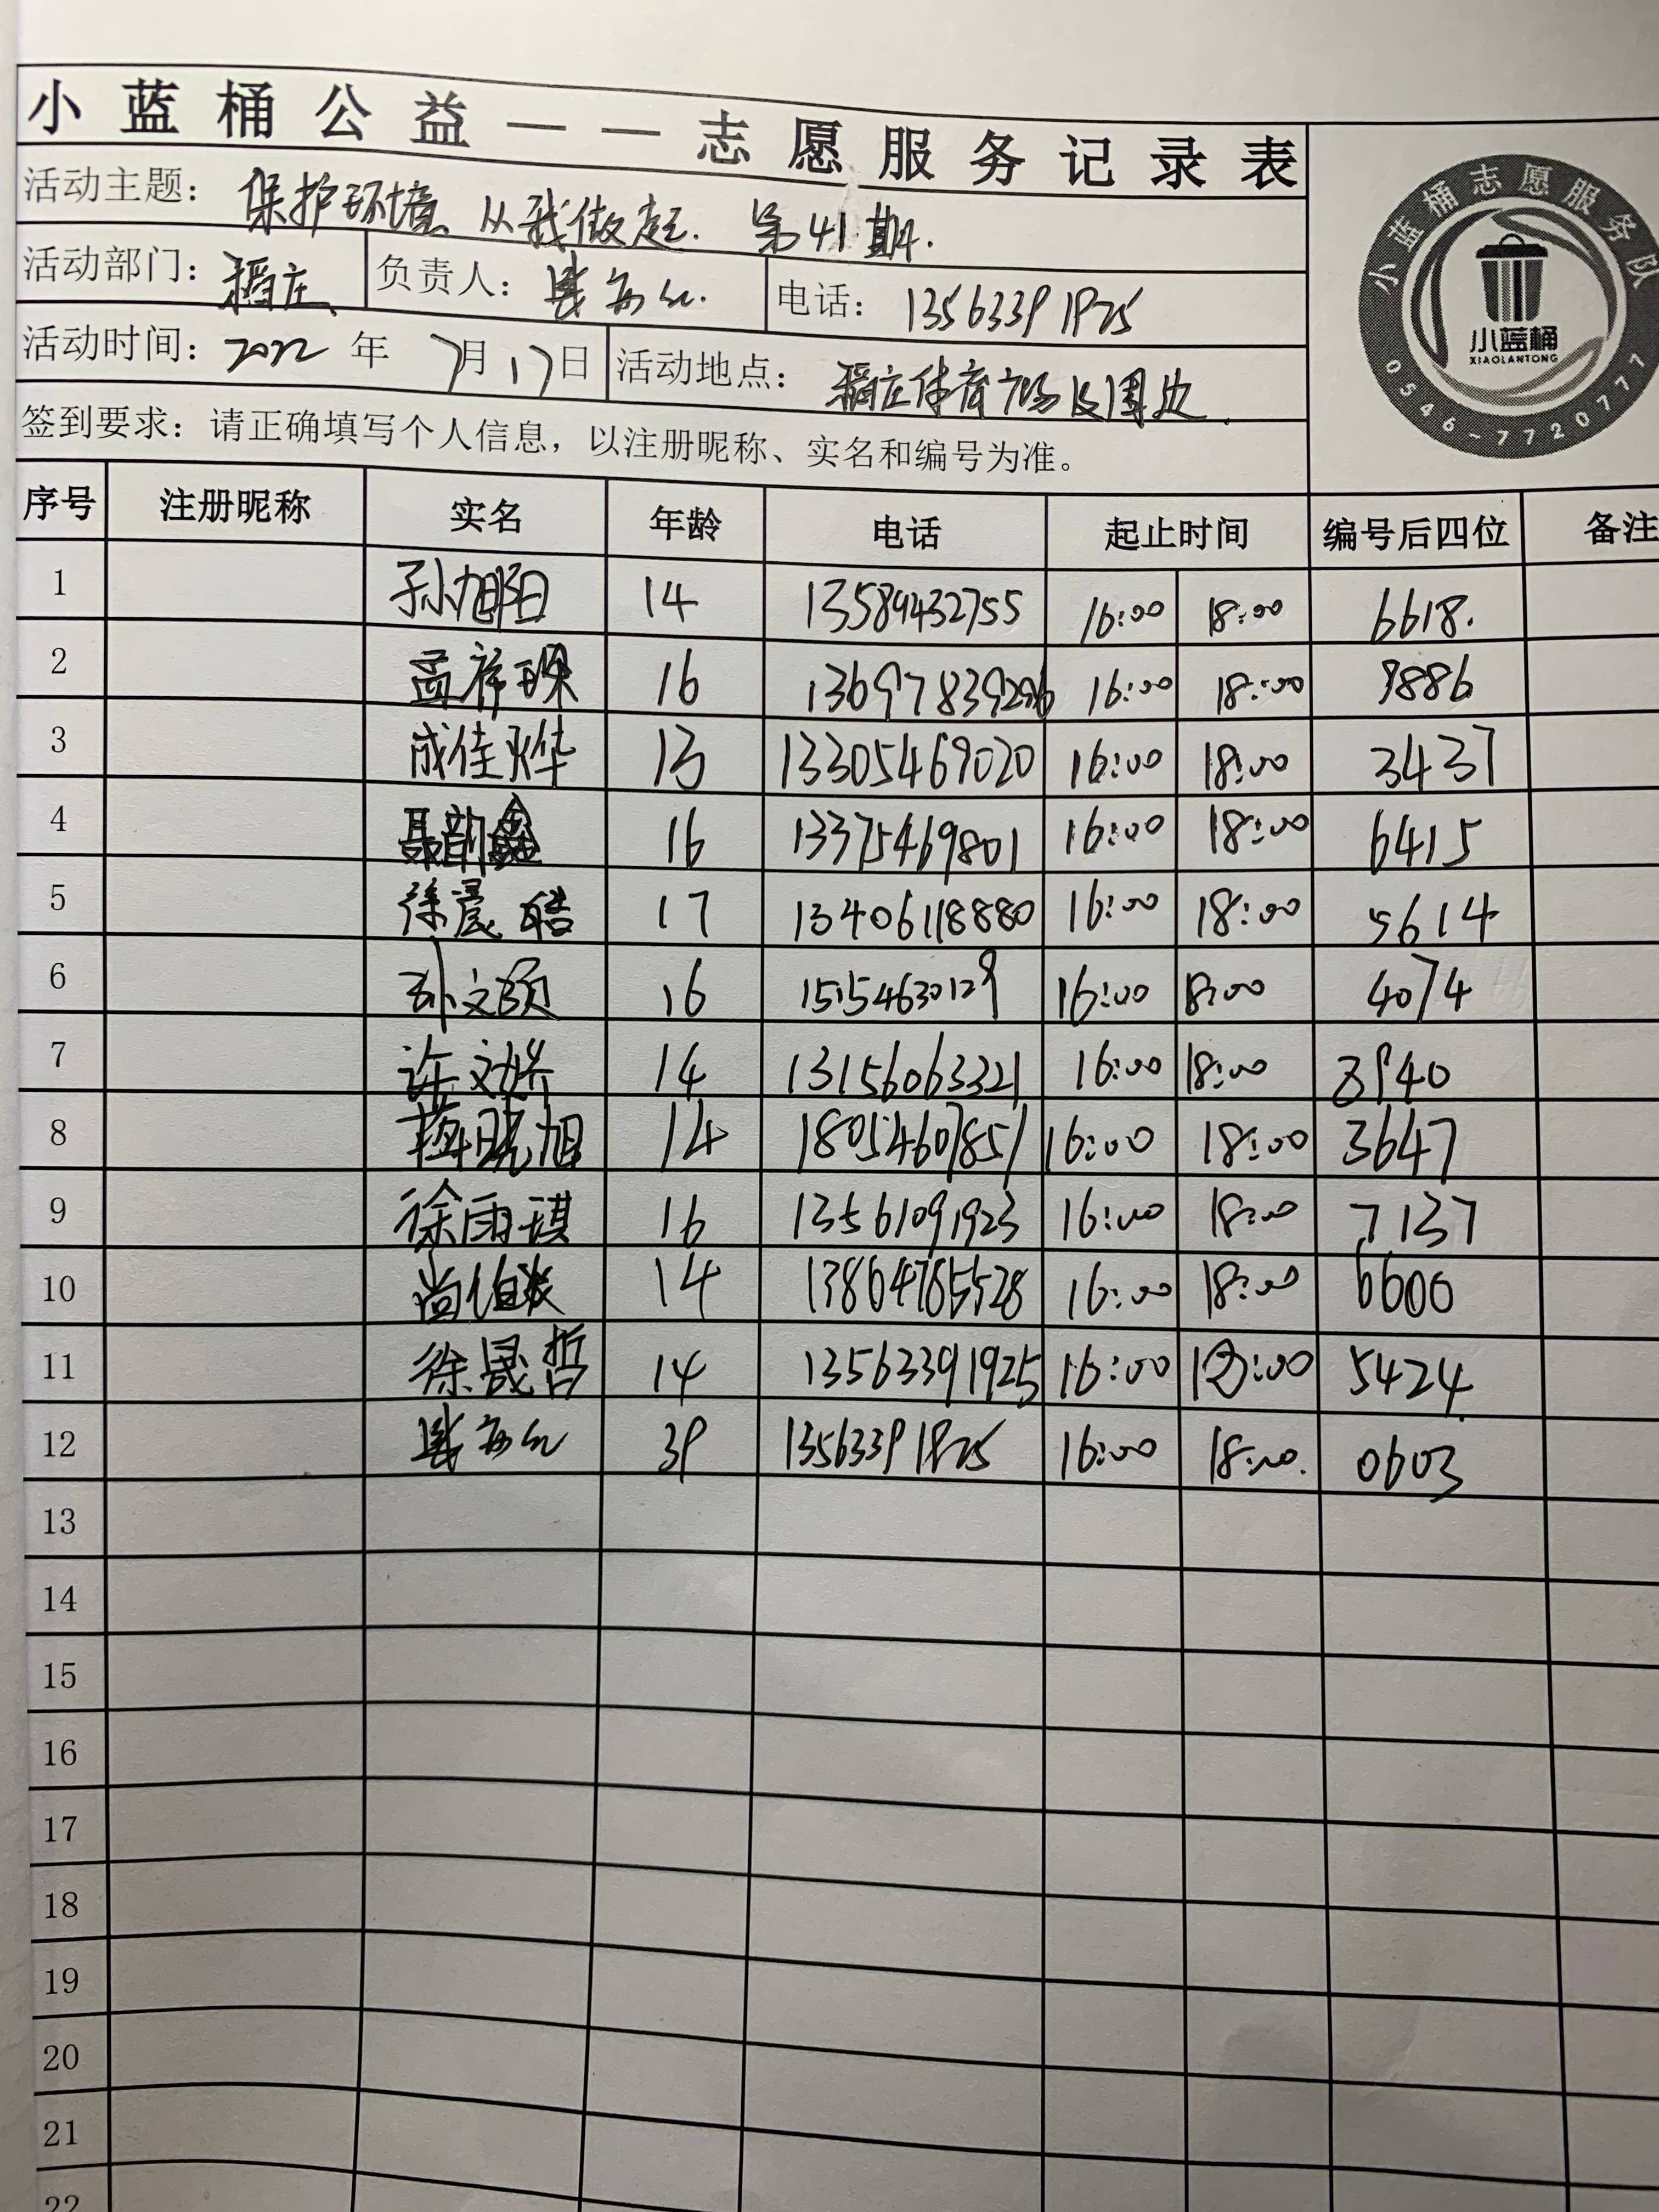 小蓝桶公益——志愿服务记录表
活动主题： 保护环境 从我做起. 第41期.
活动部门： 稻庄 负责人： 电话： 13563391925
活动时间：2022 年 7月17日 活动地点： 稻庄体育广场及周边.
签到要求：请正确填写个人信息，以注册昵称、实名和编号为准。
小蓝桶志愿服务队
小蓝桶
XIAOLANTONG
0546-7720777
序号 注册昵称 实名 年龄 电话 起止时间 编号后四位 备注
1 孙旭阳 14 13589432755 16:00 18:00 6618.
2 孟祥琛 16 16:00 18:00 9886
3 成佳烨 13 13305469020 16:00 18:00 3437
4 聂韵鑫 16 13375469801 16:00 18:00 6415
5 徐晨皓 17 13406118880 16:00 18:00 5614
6 孙文颂 16 15154630129 16:00 18:00 4074
7 许文娇 14 13156063321 16:00 18:00 8940
8 蒋晓旭 14 18054607851 16:00 18:00 3647
9 徐雨琪 16 13561091923 16:00 18:00 7137
10 14 13864765528 16:00 18:00 6600
11 徐晟哲 14 13563391925 16:00 18:00 5424
12 39 13563391925 16:00 18:00. 0603
13
14
15
16
17
18
19
20
21
22